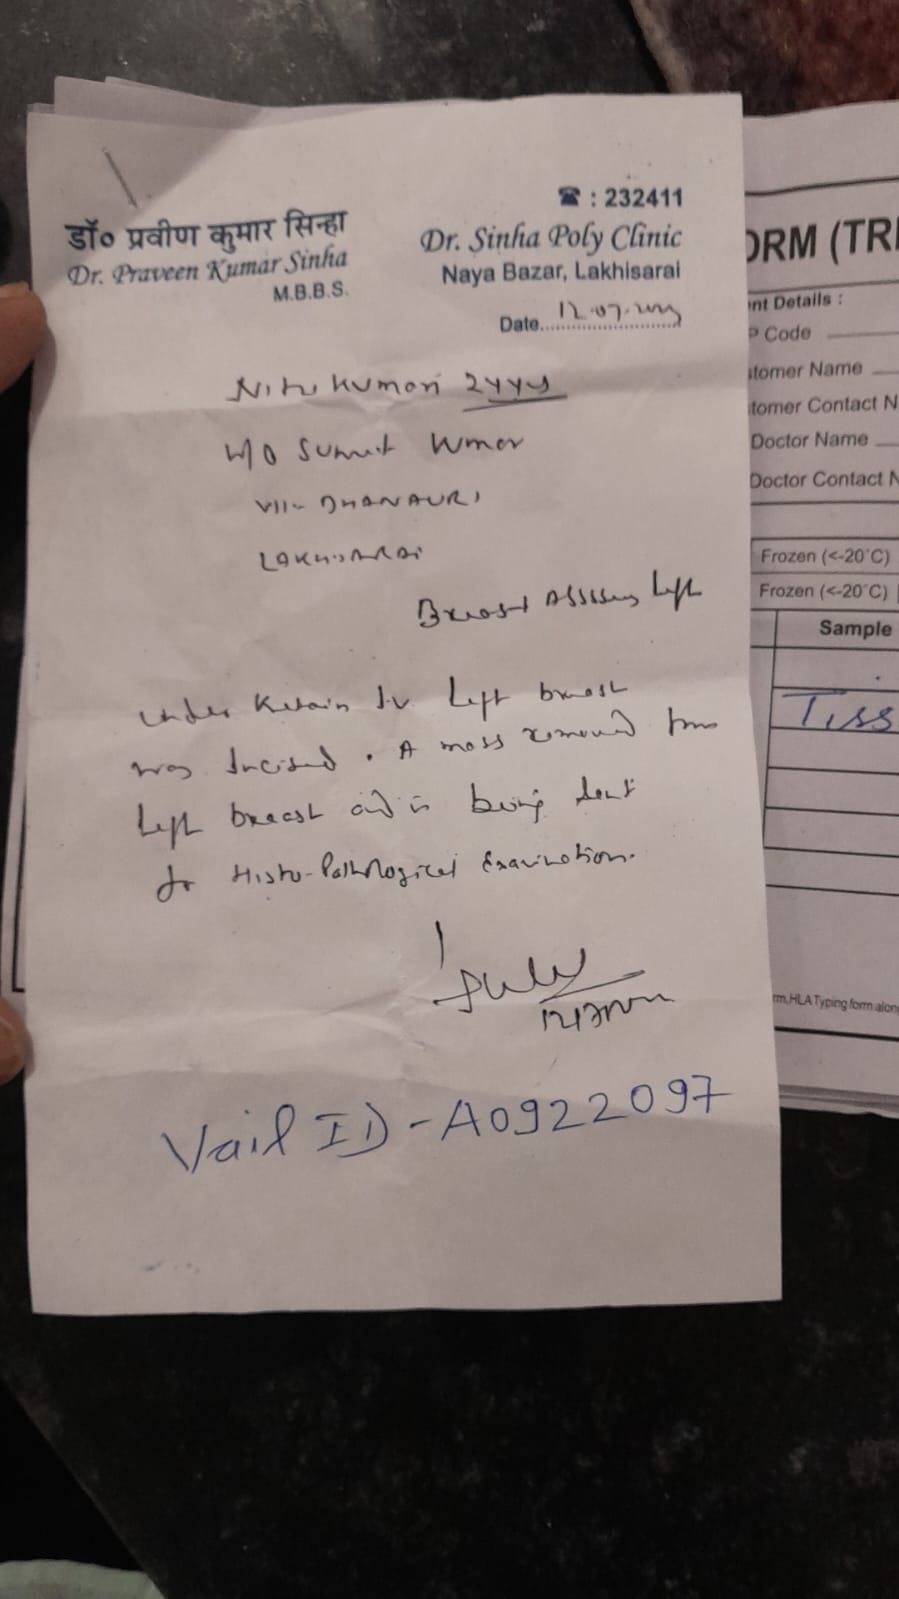 डॉ० प्रवीण कुमार सिन्हा
Dr. Praveen Kumar Sinha
M.B.B.S.
☎ : 232411
Dr. Sinha Poly Clinic
Naya Bazar, Lakhisarai
Date 12.07.
Kumari 24 yrs
W/O Sumit Kumar
Vill- DHANAURI
LAKHISARAI
Breast Left
Under Left breast
was Incised. A mass removed from
Left breast and is being sent
for Histo-Pathological Examination.
Vail ID-A0922097
ORM (TR
nt Details :
P Code
tomer Name
tomer Contact N
Doctor Name
Doctor Contact N
Frozen (<-20°C)
Frozen (<-20°C)
Sample
Tiss
rm,HLA Typing form alon